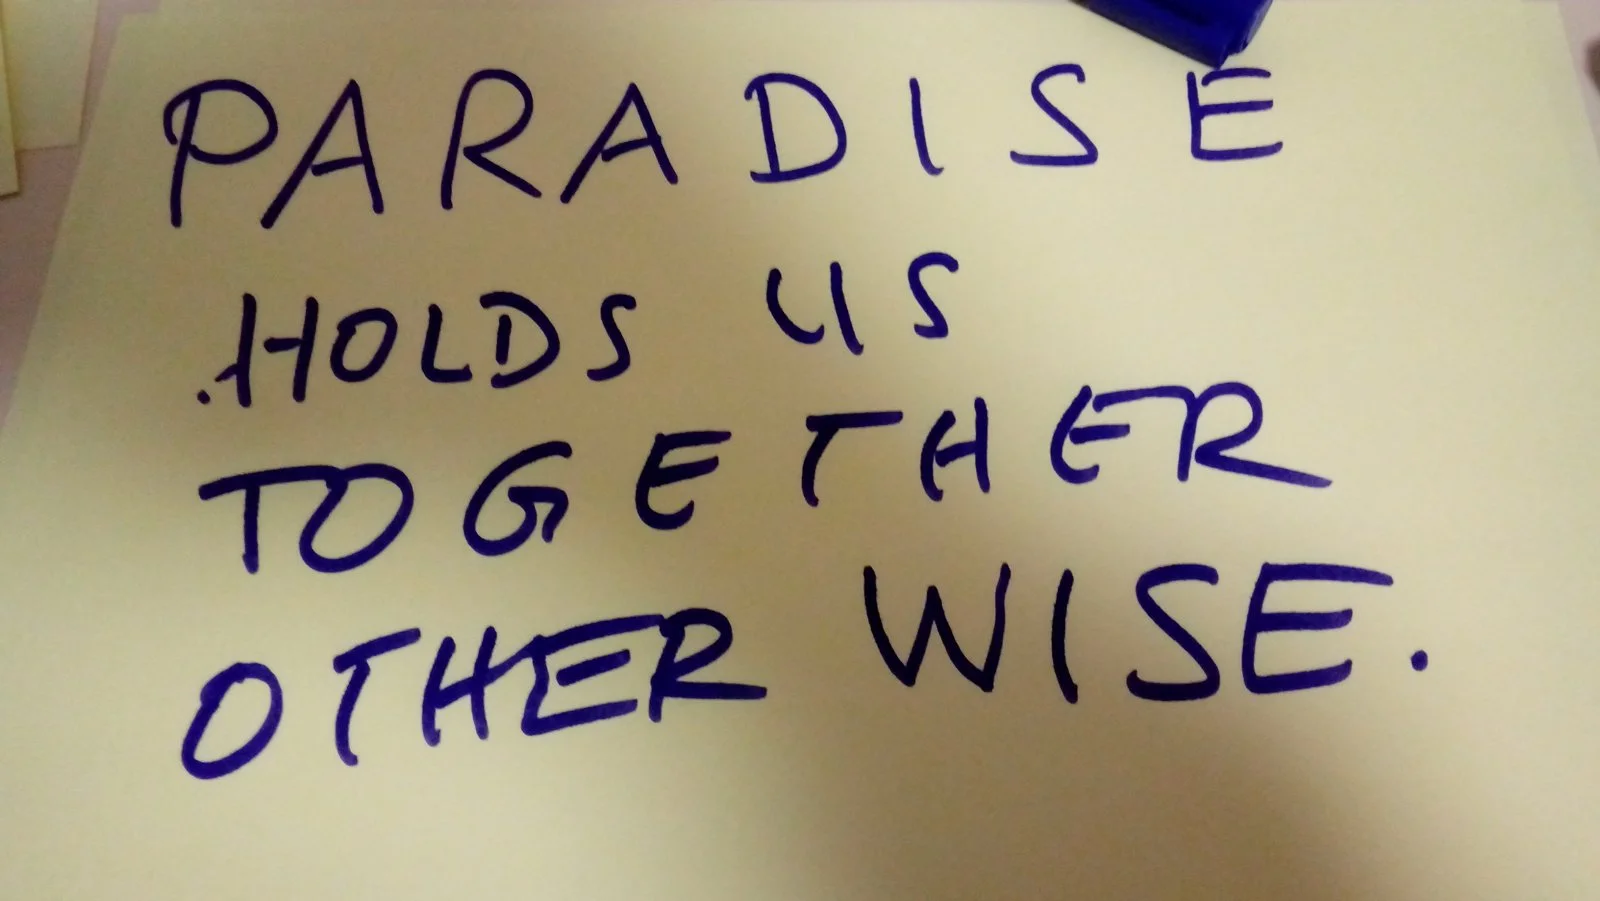 PARADISE
HOLDS US
TOGETHER
OTHER WISE.